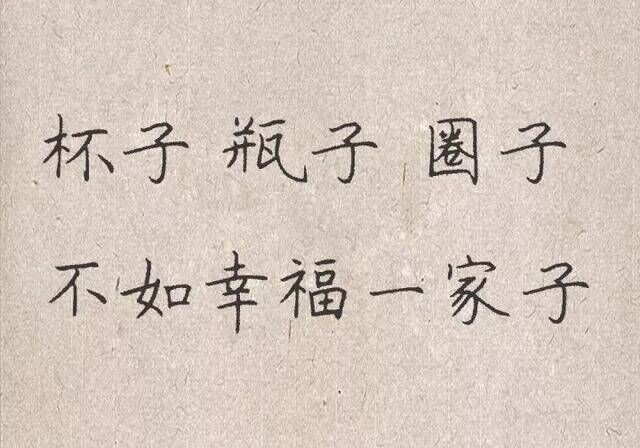 杯子 瓶子 圈子
不如幸福一家子